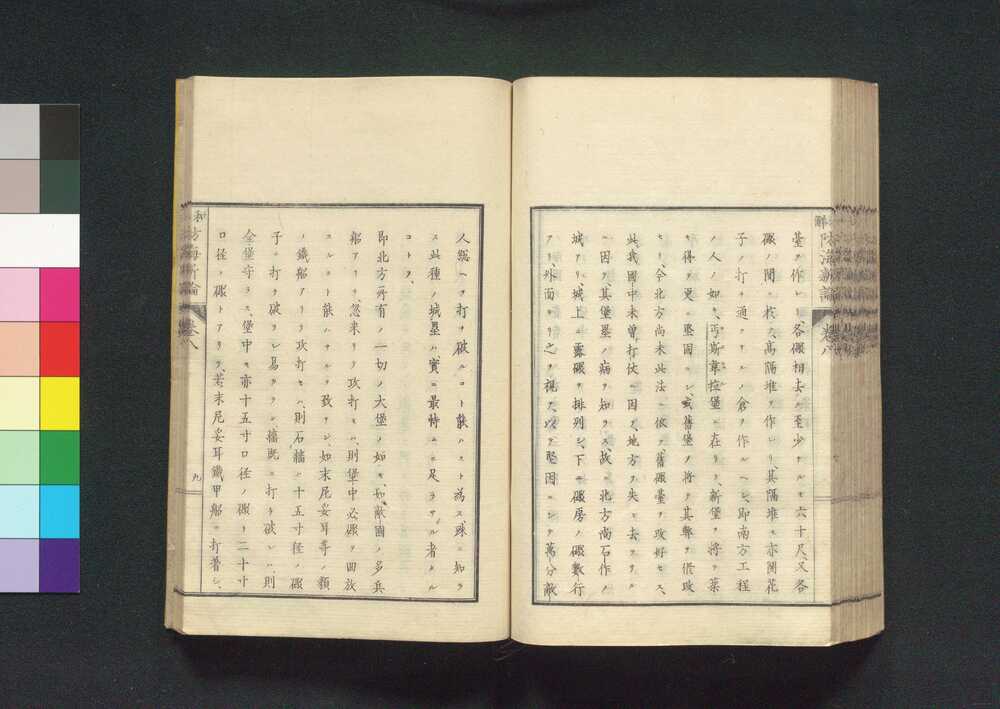 臺ヲ作レリ、各礮相去ル至少ナルモ六十尺、又各
礮ノ間ニ於テ高隔堆ヲ作レリ其隔堆モ亦開花
子ノ打チ通サヽルノ倉ヲ作ルヘシ、即南方工程
ノ人ノ如キ、丐斯韋揑堡ニ在リテ、新堡ヲ將テ築
キ得テ更ニ堅固ニシ或舊堡ヲ將テ其弊ヲ修改
セリ、今北方尚未此法ニ依テ舊礮臺ヲ改好セス、
此我國中未曾打仗ニ因テ地方ヲ失ヒ去ラサル
ニ因テ、其堡壘ノ病ヲ知ラス、故ニ北方尚石作ノ
城アリ、城上ニ露礮ヲ排列シ、下ニ礮房ノ礮數行
アリ、外面ヨリ之ヲ視テ、以テ堅固ニシテ萬分敵
人總ヘテ打チ破ルコト能ハスト為ス、殊ニ知ラ
ス此種ノ城壘ハ實ニ最恃ムニ足ラサル者タル
コトヲ、
即北方所有ノ一切ノ大堡ノ如キ、如敵國ノ多兵
船アリテ、忽來リテ攻打セハ、則堡中必礮ヲ回放
スルコト能ハサルヲ致サン、如末尼妥耳等ノ類
ノ鐵船アリテ攻打セハ、則石牆ハ十五寸徑ノ礮
子ニ打チ破ラレ易カラン、牆既ニ打チ破レハ、則
全堡守ラス、堡中モ亦十五寸口徑ノ礮ト二十寸
口徑ノ礮トアリテ、若末尼妥耳鐵甲船ニ打著シ、
解 防海新論 卷八
和 防海新論 卷八
九